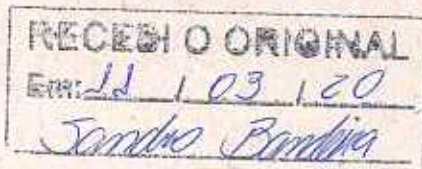 RECEBI O ORIGINAL
Em: 11 / 03 / 20
Sandro Bandeira